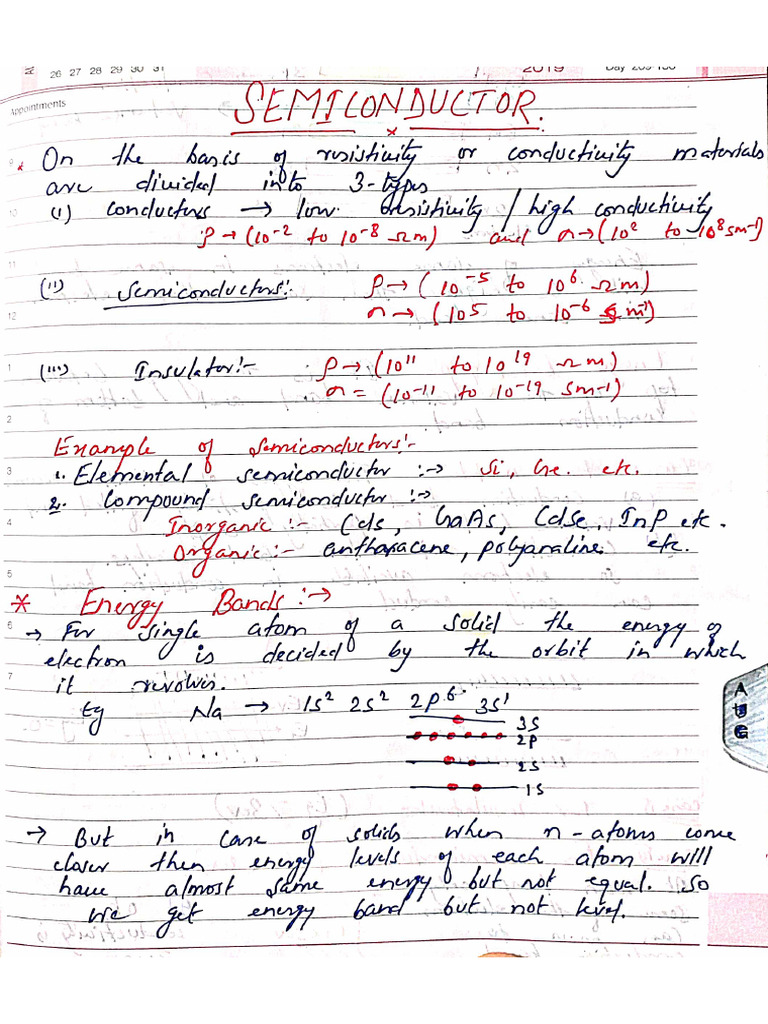 26 27 28 29 30 31 2019
Appointments
SEMICONDUCTOR.
* On the basis of resistivity or conductivity materials
are divided into 3-types
(i) conductors → low resistivity / high conductivity
ρ → (10⁻² to 10⁻⁸ Ωm) and σ → (10² to 10⁸ Sm⁻¹)
(ii) Semiconductors:- ρ → (10⁻⁵ to 10⁶ Ωm)
σ → (10⁵ to 10⁻⁶ Sm⁻¹)
(iii) Insulator:- ρ → (10¹¹ to 10¹⁹ Ωm)
σ = (10⁻¹¹ to 10⁻¹⁹ Sm⁻¹)
Example of semiconductors:-
1. Elemental semiconductor :→ Si, Ge. etc.
2. Compound semiconductor :→
Inorganic :- Cds, GaAs, CdSe, InP etc.
Organic :- antharacene, polyanaline. etc.
* Energy Bands :→
→ For single atom of a solid the energy of
electron is decided by the orbit in which
it revolves.
eg Na → 1s² 2s² 2p⁶ 3s¹
3s
2p
2s
1s
→ But in case of solids when n-atoms come
closer then energy levels of each atom will
have almost same energy but not equal. So
we get energy band but not level.
9
10
11
12
1
2
3
4
5
6
7
AUG